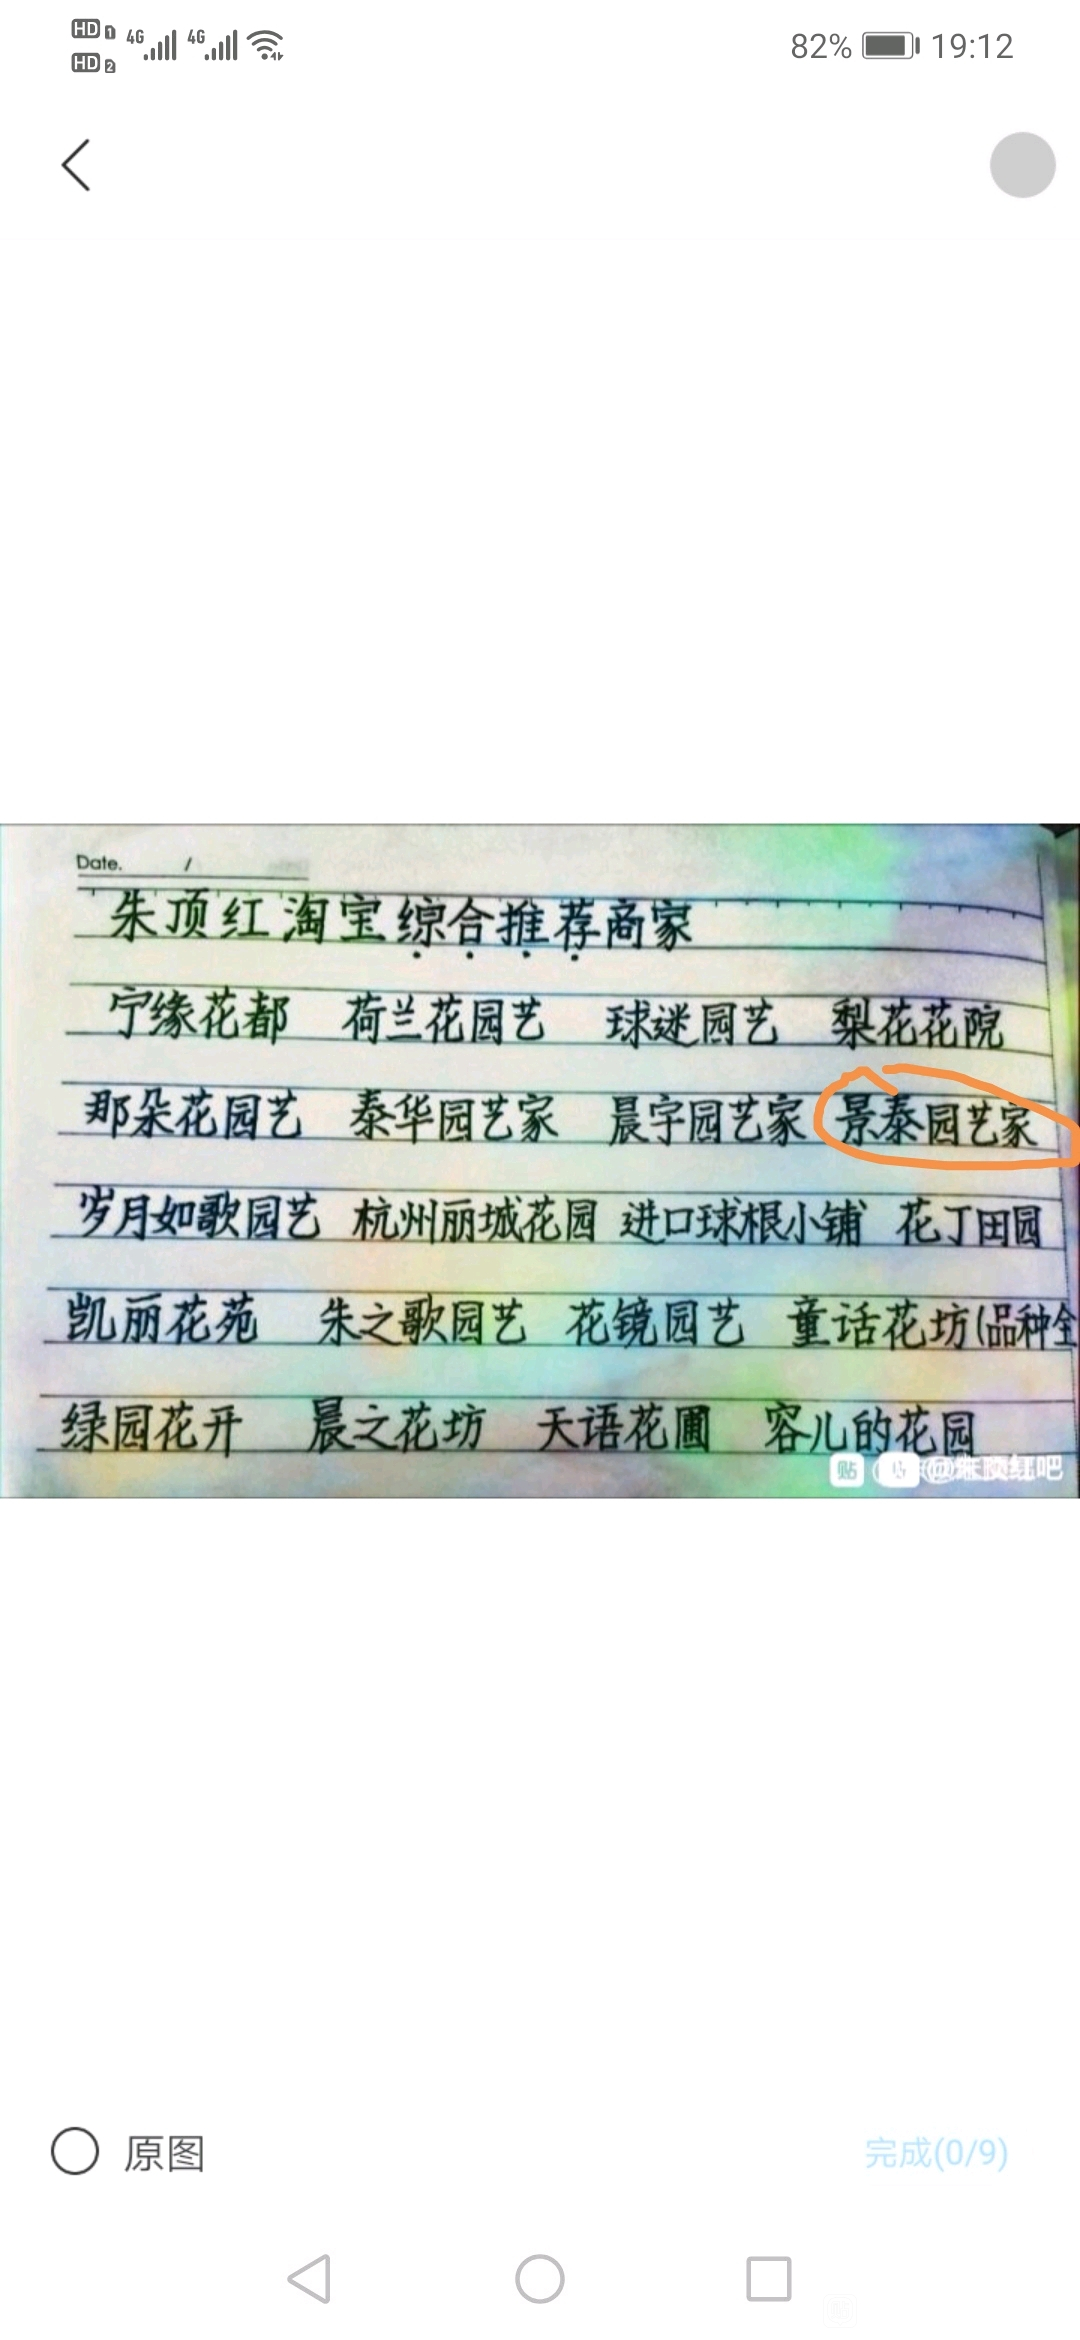 HD 1 4G 4G 82% 19:12
HD 2
Date. /
朱顶红淘宝综合推荐商家
宁缘花都 荷兰花园艺 球迷园艺 梨花花院
那朵花园艺 泰华园艺家 晨宇园艺家 景泰园艺家
岁月如歌园艺 杭州丽城花园 进口球根小铺 花丁田园
凯丽花苑 朱之歌园艺 花镜园艺 童话花坊(品种全
绿园花开 晨之花坊 天语花圃 容儿的花园
贴 @朱顶红吧
原图 完成(0/9)